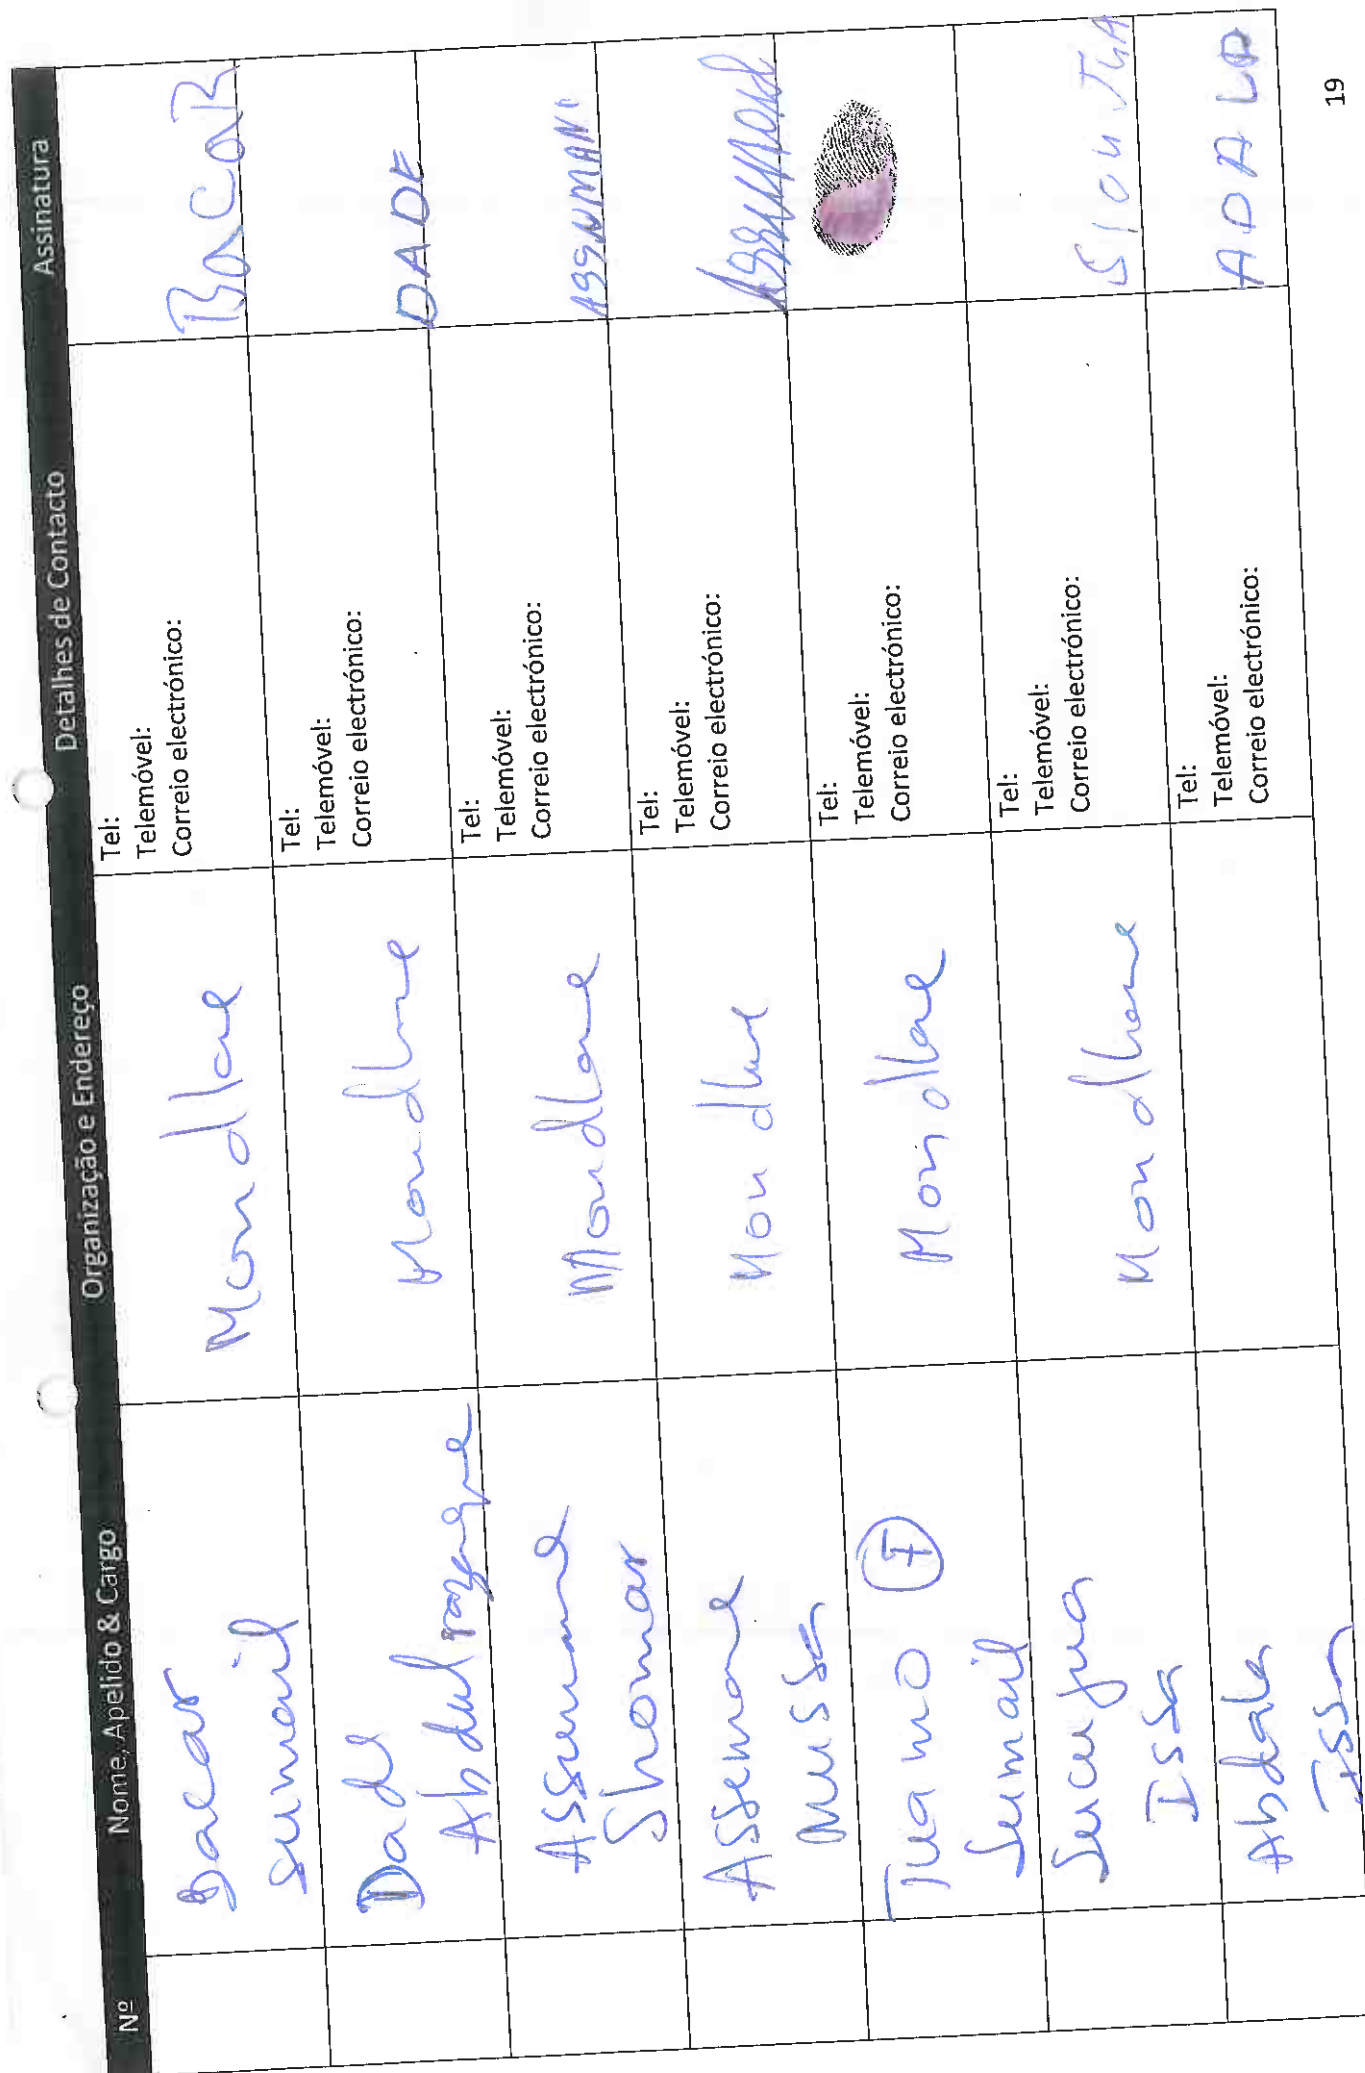 Nº Nome, Apelido & Cargo Organização e Endereço Detalhes de Contacto Assinatura
Bacar
sumail
Mondlane
Tel:
Telemóvel:
Correio electrónico:
BACAR
Dade
Abdul razaque
Mondlane
Tel:
Telemóvel:
Correio electrónico:
DADE
Assumane
Shomar
Mondlane
Tel:
Telemóvel:
Correio electrónico:
ASSUMANI
Assemane
Mussa
Mondlane
Tel:
Telemóvel:
Correio electrónico:
Tuamo F
Sumail
Mondlane
Tel:
Telemóvel:
Correio electrónico:
Issa
Mondlane
Tel:
Telemóvel:
Correio electrónico:
Abdala
Issa
Tel:
Telemóvel:
Correio electrónico:
ADALA
19